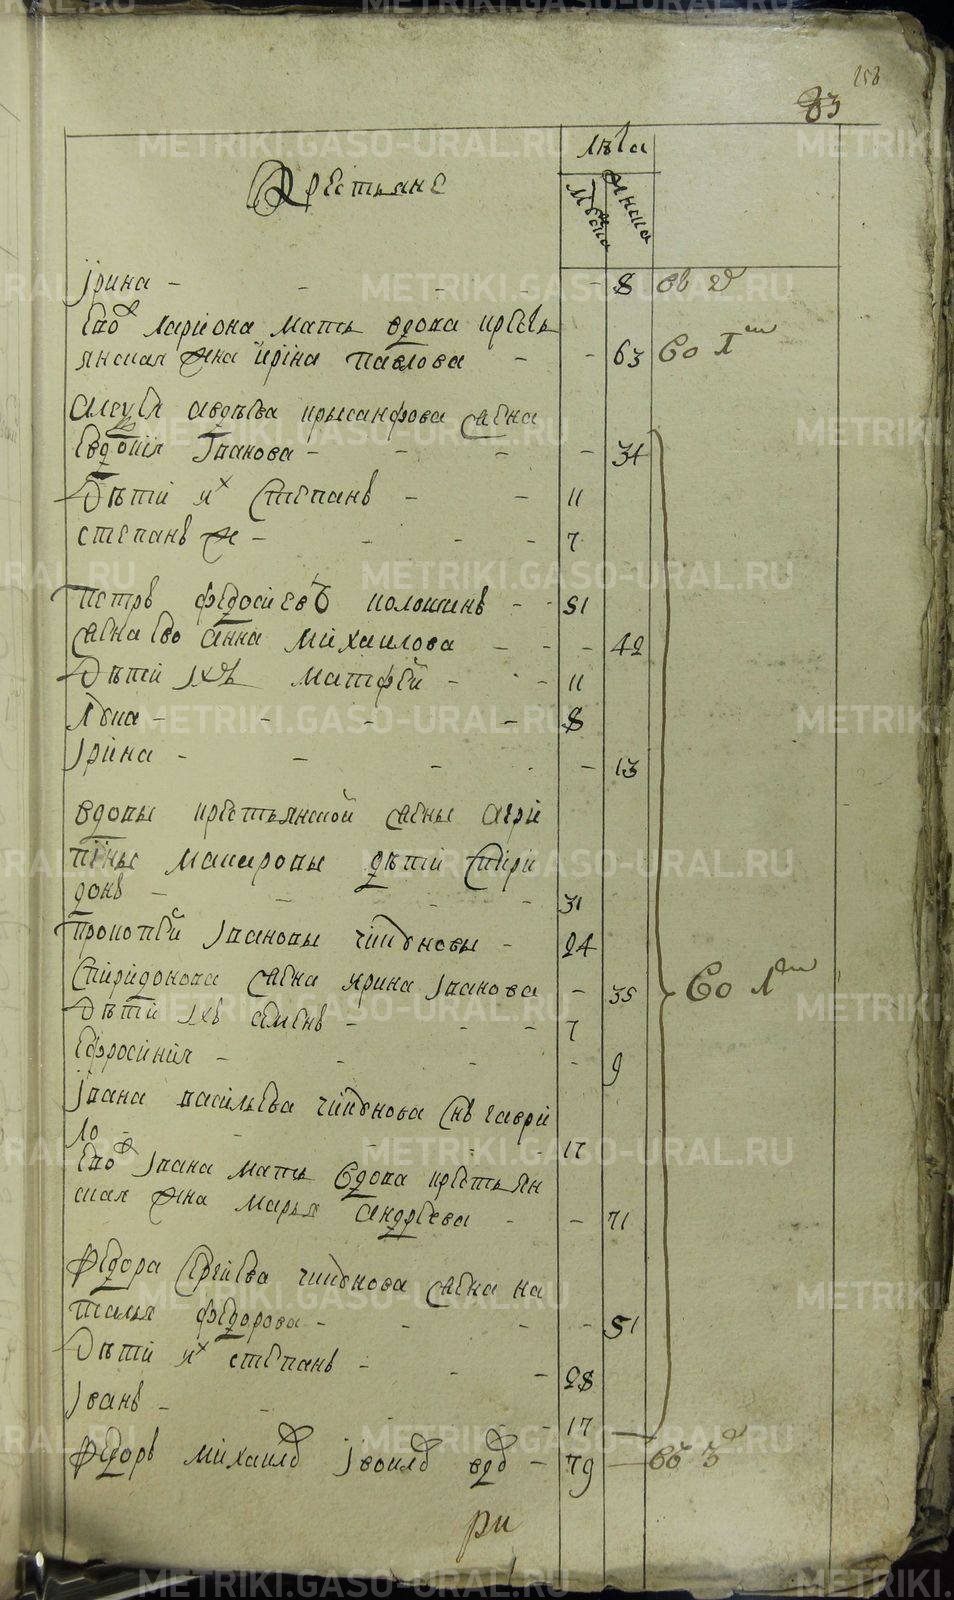 258
83
лѣта
Крестьяне
мужска
женска
Ірина - - - - 8 во в
Ево Лариона мать вдова кресть
янская жена Іріна Павлова - - 63 Во
Алеѯѣя Авдѣева Крысанфова жена
Евдокія Іванова - - - - 34
Дѣти их Степанъ - - 11
Степанъ же - - - - 7
Петръ Федосиевъ - - 51
жена ево Анна Михаилова - - - 42
Дѣти ихъ Матфей - - - 11
Лука - - - - 8
Ірина - - - - - 13
вдовы крестьянской жены Агри
пины Макаровы дѣти Спири
донъ - - - - 31
Прокопей Івановы - 24
Спиридонова жена Ирина Іванова - 35 Во
Дѣти ихъ Семенъ - - - 7
Ефросинія - - - - 9
Івана Васильева снъ Гаври
ло - - - - 17
Ево Івана мать вдова крестьян
ская жена Марья Андреева - - 71
Федора Сергиева жена На
талья Федорова - - - - 51
Дѣти их Степанъ - - - 28
Іванъ - - - 17
Федоръ Михаилов вдов - 79 во
ри
METRIKI.GASO-URAL.RU